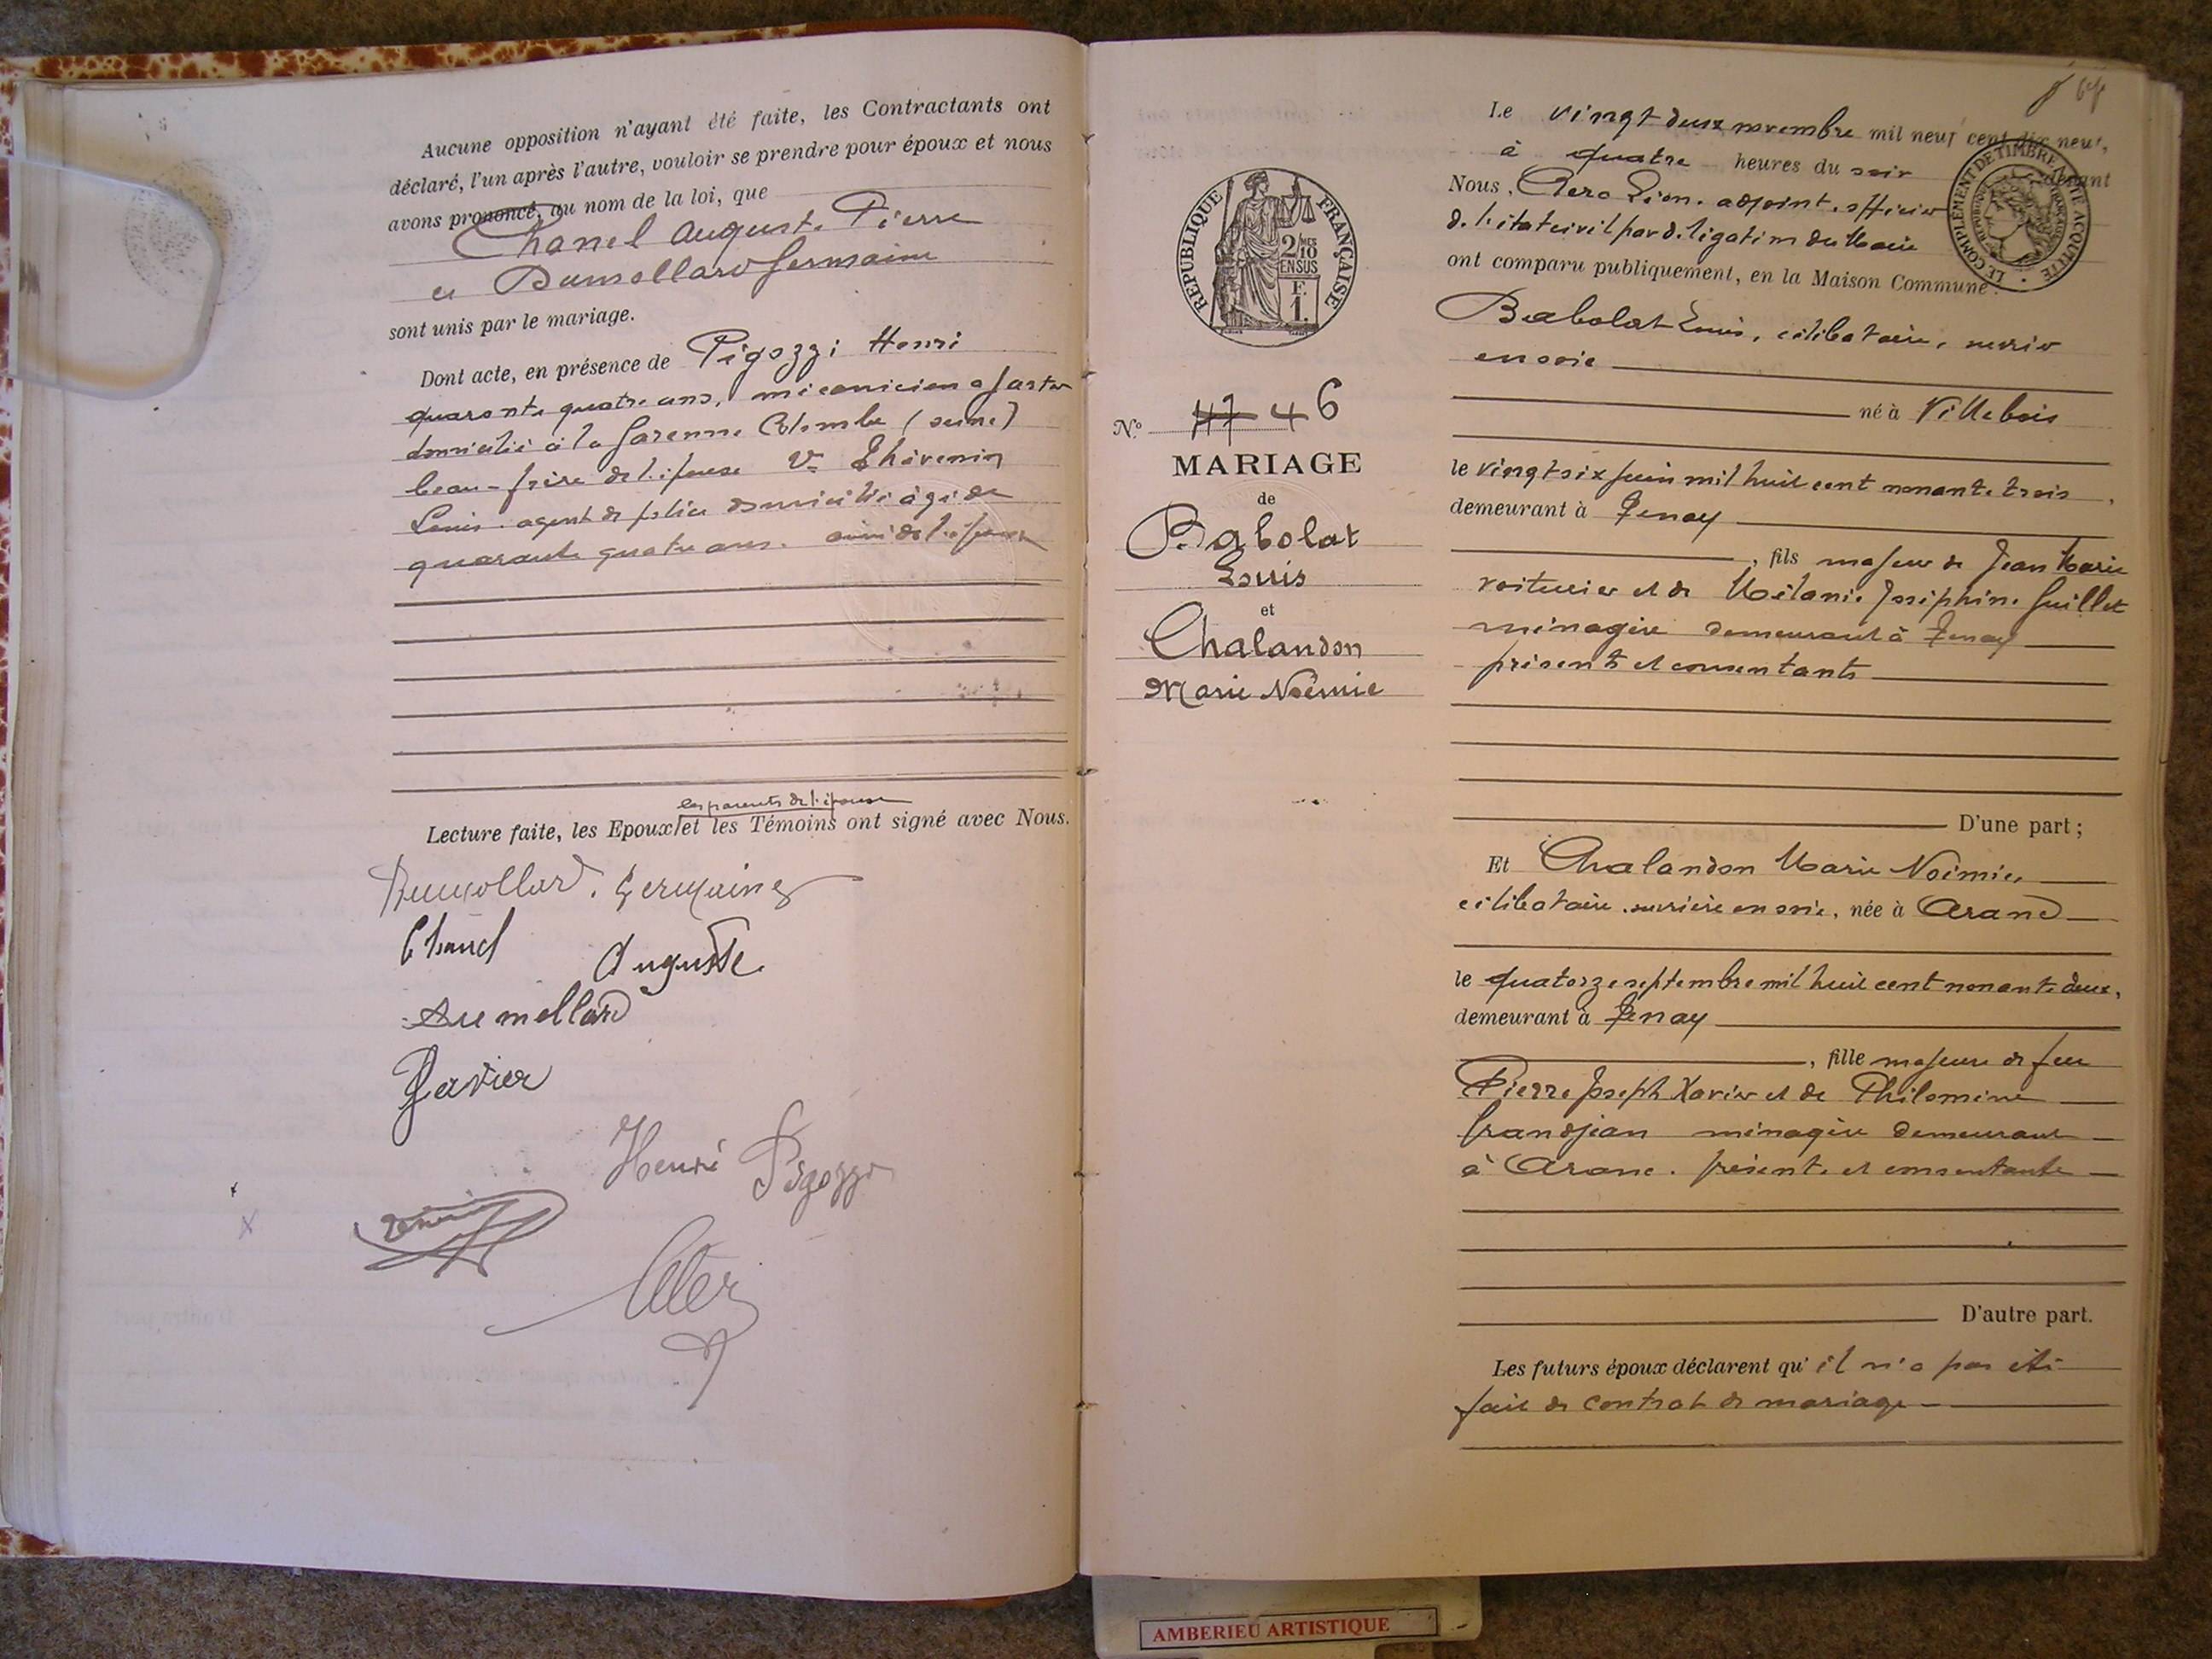 Aucune opposition n'ayant été faite, les Contractants ont
déclaré, l'un après l'autre, vouloir se prendre pour époux et nous
avons prononcé, au nom de la loi, que
Chanel Auguste Pierre
et Dumollard Germaine
sont unis par le mariage.
Dont acte, en présence de Pigozzi Henri
quarante quatre ans, mécanicien ajusteur
domicilié à la Garenne Colombe (seine)
beau-frère de l'épouse Thévenin
Louis. agent de police domicilié âgé de
quarante quatre ans. ami de l'époux
les parents de l'épouse
Lecture faite, les Epoux et les Témoins ont signé avec Nous.
Dumollard. Germaine
Chanel Auguste
Dumollard
Henri Pigozzi
Le vingt deux novembre mil neuf cent dix neuf,
à quatre heures du soir devant
Nous, adjoint. officier
de l'état civil par délégation du Maire
ont comparu publiquement, en la Maison Commune:
LE COMPLÉMENT DE TIMBRE A ÉTÉ ACQUITTÉ
RÉPUBLIQUE FRANÇAISE
2/10
EN SUS
F.
1.
N.º 47 46
MARIAGE
de
Babolat
Louis
et
Chalandon
Marie Noëmie
Babolat Louis, célibataire, ouvrier
en soie
né à Villebois
le vingt six juin mil huit cent nonante trois,
demeurant à Tenay
, fils majeur de Jean Marie
voiturier et de Mélanie Joséphine Guillet
ménagère demeurant à Tenay
présents et consentants
D'une part;
Et Chalandon Marie Noémie
célibataire. ouvrière en soie, née à Aranc
le quatorze septembre mil huit cent nonante deux,
demeurant à Tenay
, fille majeure de feu
Pierre Joseph Xavier et de Philomène
Grandjean ménagère demeurant
à Aranc. présente et consentante
D'autre part.
Les futurs époux déclarent qu'il n'a pas été
fait de contrat de mariage
AMBERIEU ARTISTIQUE